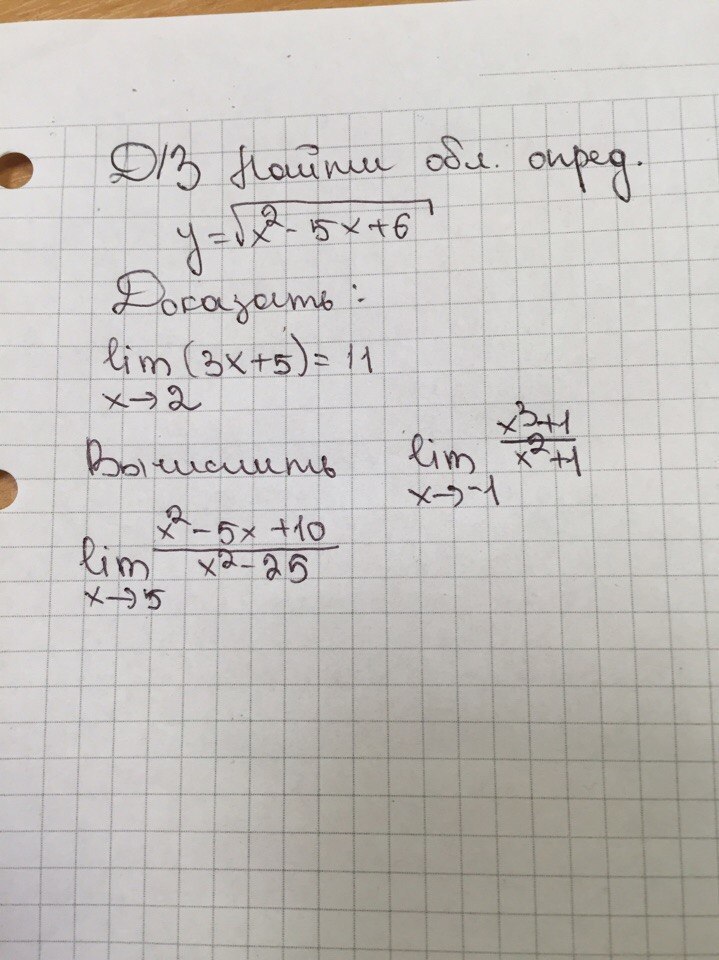 Д/З Найти обл. опред.
y = √x² - 5x + 6
Доказать:
lim (3x+5) = 11
x→2
Вычислить lim x³+1 / x²+1
x→-1
lim x² - 5x + 10 / x² - 25
x→5